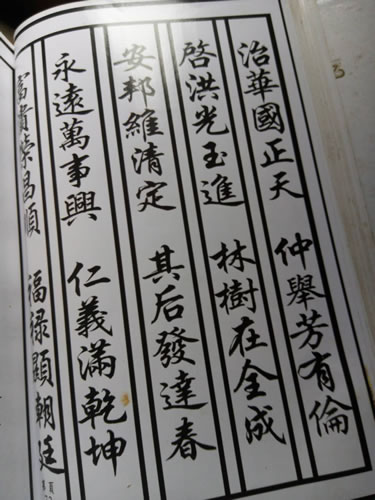 治華國正天 仲舉芳有倫
啓洪光玉進 林樹在全成
安邦維清定 其后發達春
永遠萬事興 仁義滿乾坤
富貴榮昌順 福禄顯朝廷